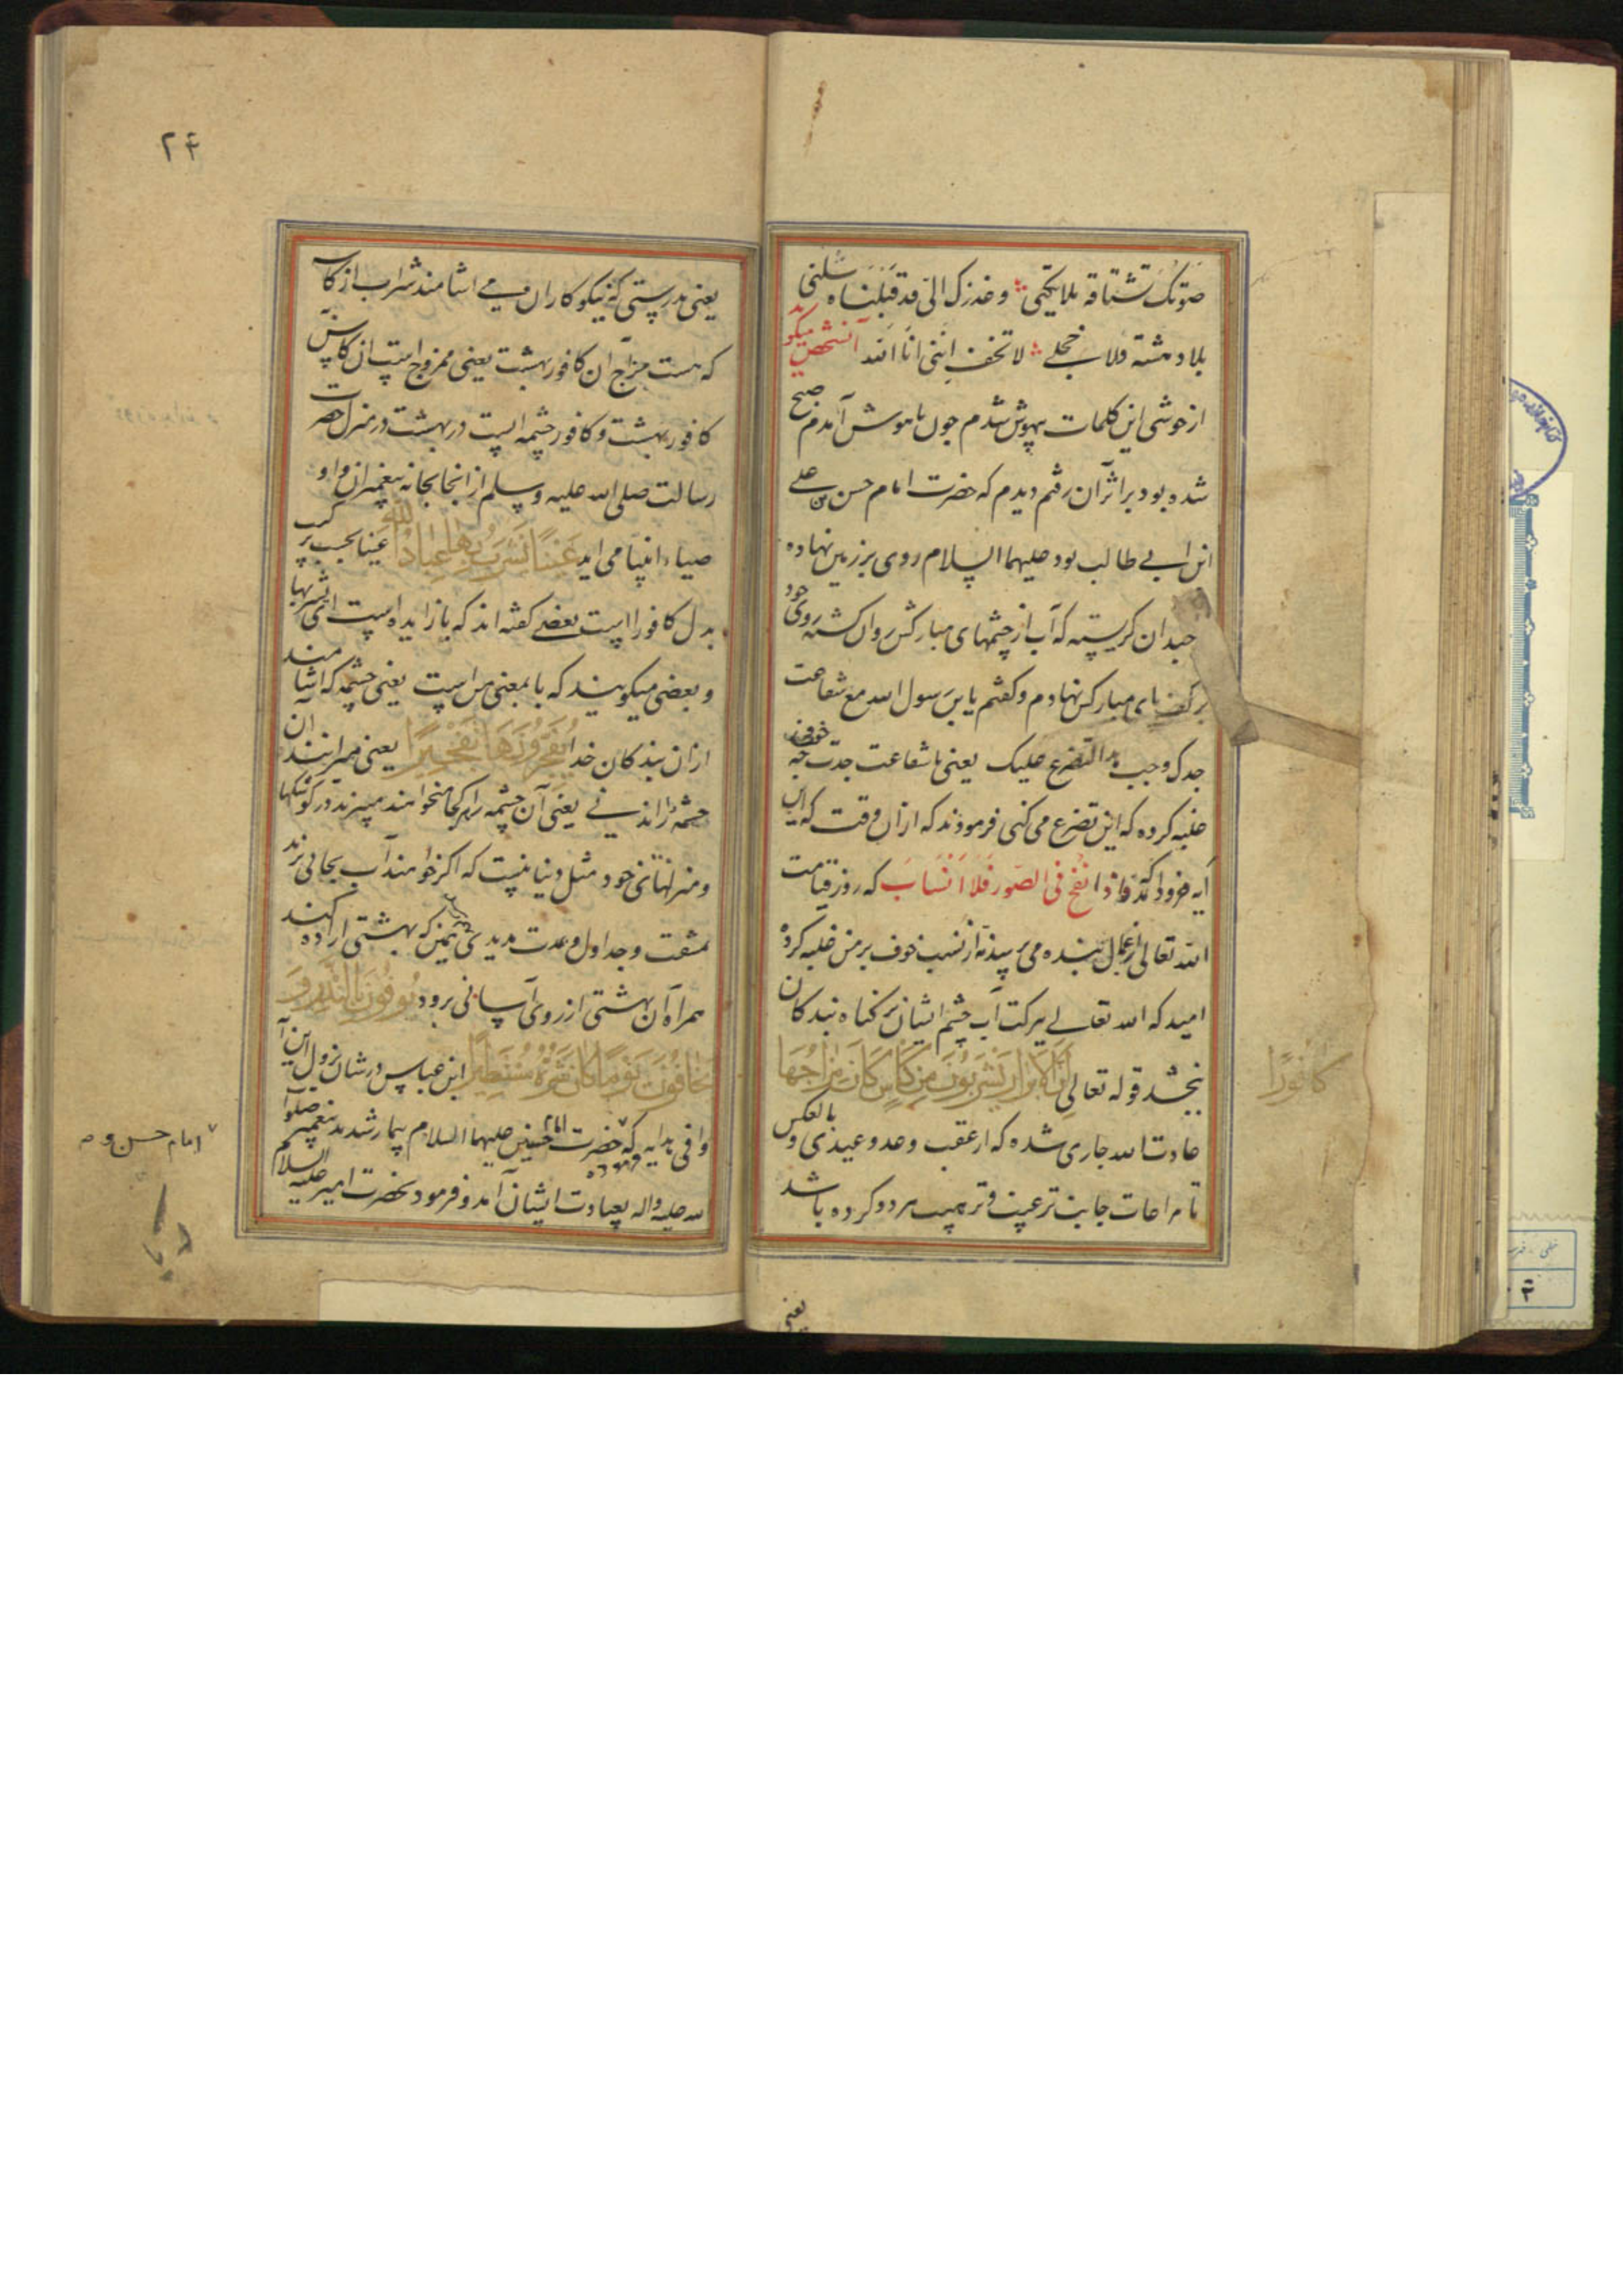 صوتک تشتاقه ملائکتی و عذرک الی قد قبلناه سلنی
بلا دهشته ولا خجلی لا تخف اننی انا الله آنشخص میکوید
از خوشی این کلمات بیهوش شدم چون باهوش آمدم صبح
شده بود بر اثر آن رفتم دیدم که حضرت امام حسن بن علی
ابن ابی طالب بود علیهما السلام روی بر زمین نهاده
چندان کریسته که آب از چشمهای مبارکش روان کشته روی خود
بر کف پای مبارکش نهادم و کفتم یابن رسول الله مع شفاعت
جدک وجب التضرع علیک یعنی با شفاعت جدت چه خوف
غلبه کرده که این تضرع می کنی فرمودند که از ان وقت که این
آیه فرود آمد فاذا نفخ فی الصور فلا انساب که روز قیامت
الله تعالی از عمل بنده می پرسد نه از نسب خوف بر من غلبه کرده
امید که الله تعالی ببرکت آب چشم ایشان بر کناه بندکان
ببخشد قوله تعالی ان الابرار یشربون من کاس کان مزاجها
کافورا
عادت الله جاری شده که از عقب وعد وعیدی و بالعکس
تا مراعات جانب ترغیب و ترهیب هر دو کرده باشد
یعنی
۲۴
یعنی بدرستی که نیکوکاران می اشامند شراب از کاس
که هست مزاج ان کافور بهشت یعنی ممزوج است ان کاس
کافور بهشت و کافور چشمه ایست در بهشت در منزل حضرت
رسالت صلی الله علیه وسلم از انجا بخانه پیغمبران و او
صیاء انبیا می اید عینا یشرب بها عباد الله عینا بحسب ترکیب
بدل کافورا است بعضی کفته اند که با زایده است ای یشربها
و بعضی میکویند که با بمعنی من است یعنی چشمه که اشامند
از ان بندکان خدا یفجرونها تفجیرا یعنی میرانند ان
چشمه راندنی یعنی آن چشمه را هر کجا میخواهند میبرند در کوشکها
و منزلهای خود مثل دنیا نیست که اکر خواهند آب بجائی برند
بمشقت و جداول و مدت مدیدی همین که بهشتی اراده کند
همراه آن بهشتی از روی آسانی برود یوفون بالنذر و
یخافون یوما کان شره مستطیرا ابن عباس در شان نزول این آ
وافی هدایه فرموده که حضرت امام حسنین علیهما السلام بیمار شدند پیغمبر صلوا
امام حسن و
لله علیه واله بعیادت ایشان آمد و فرمود بحضرت امیر علیه السلام